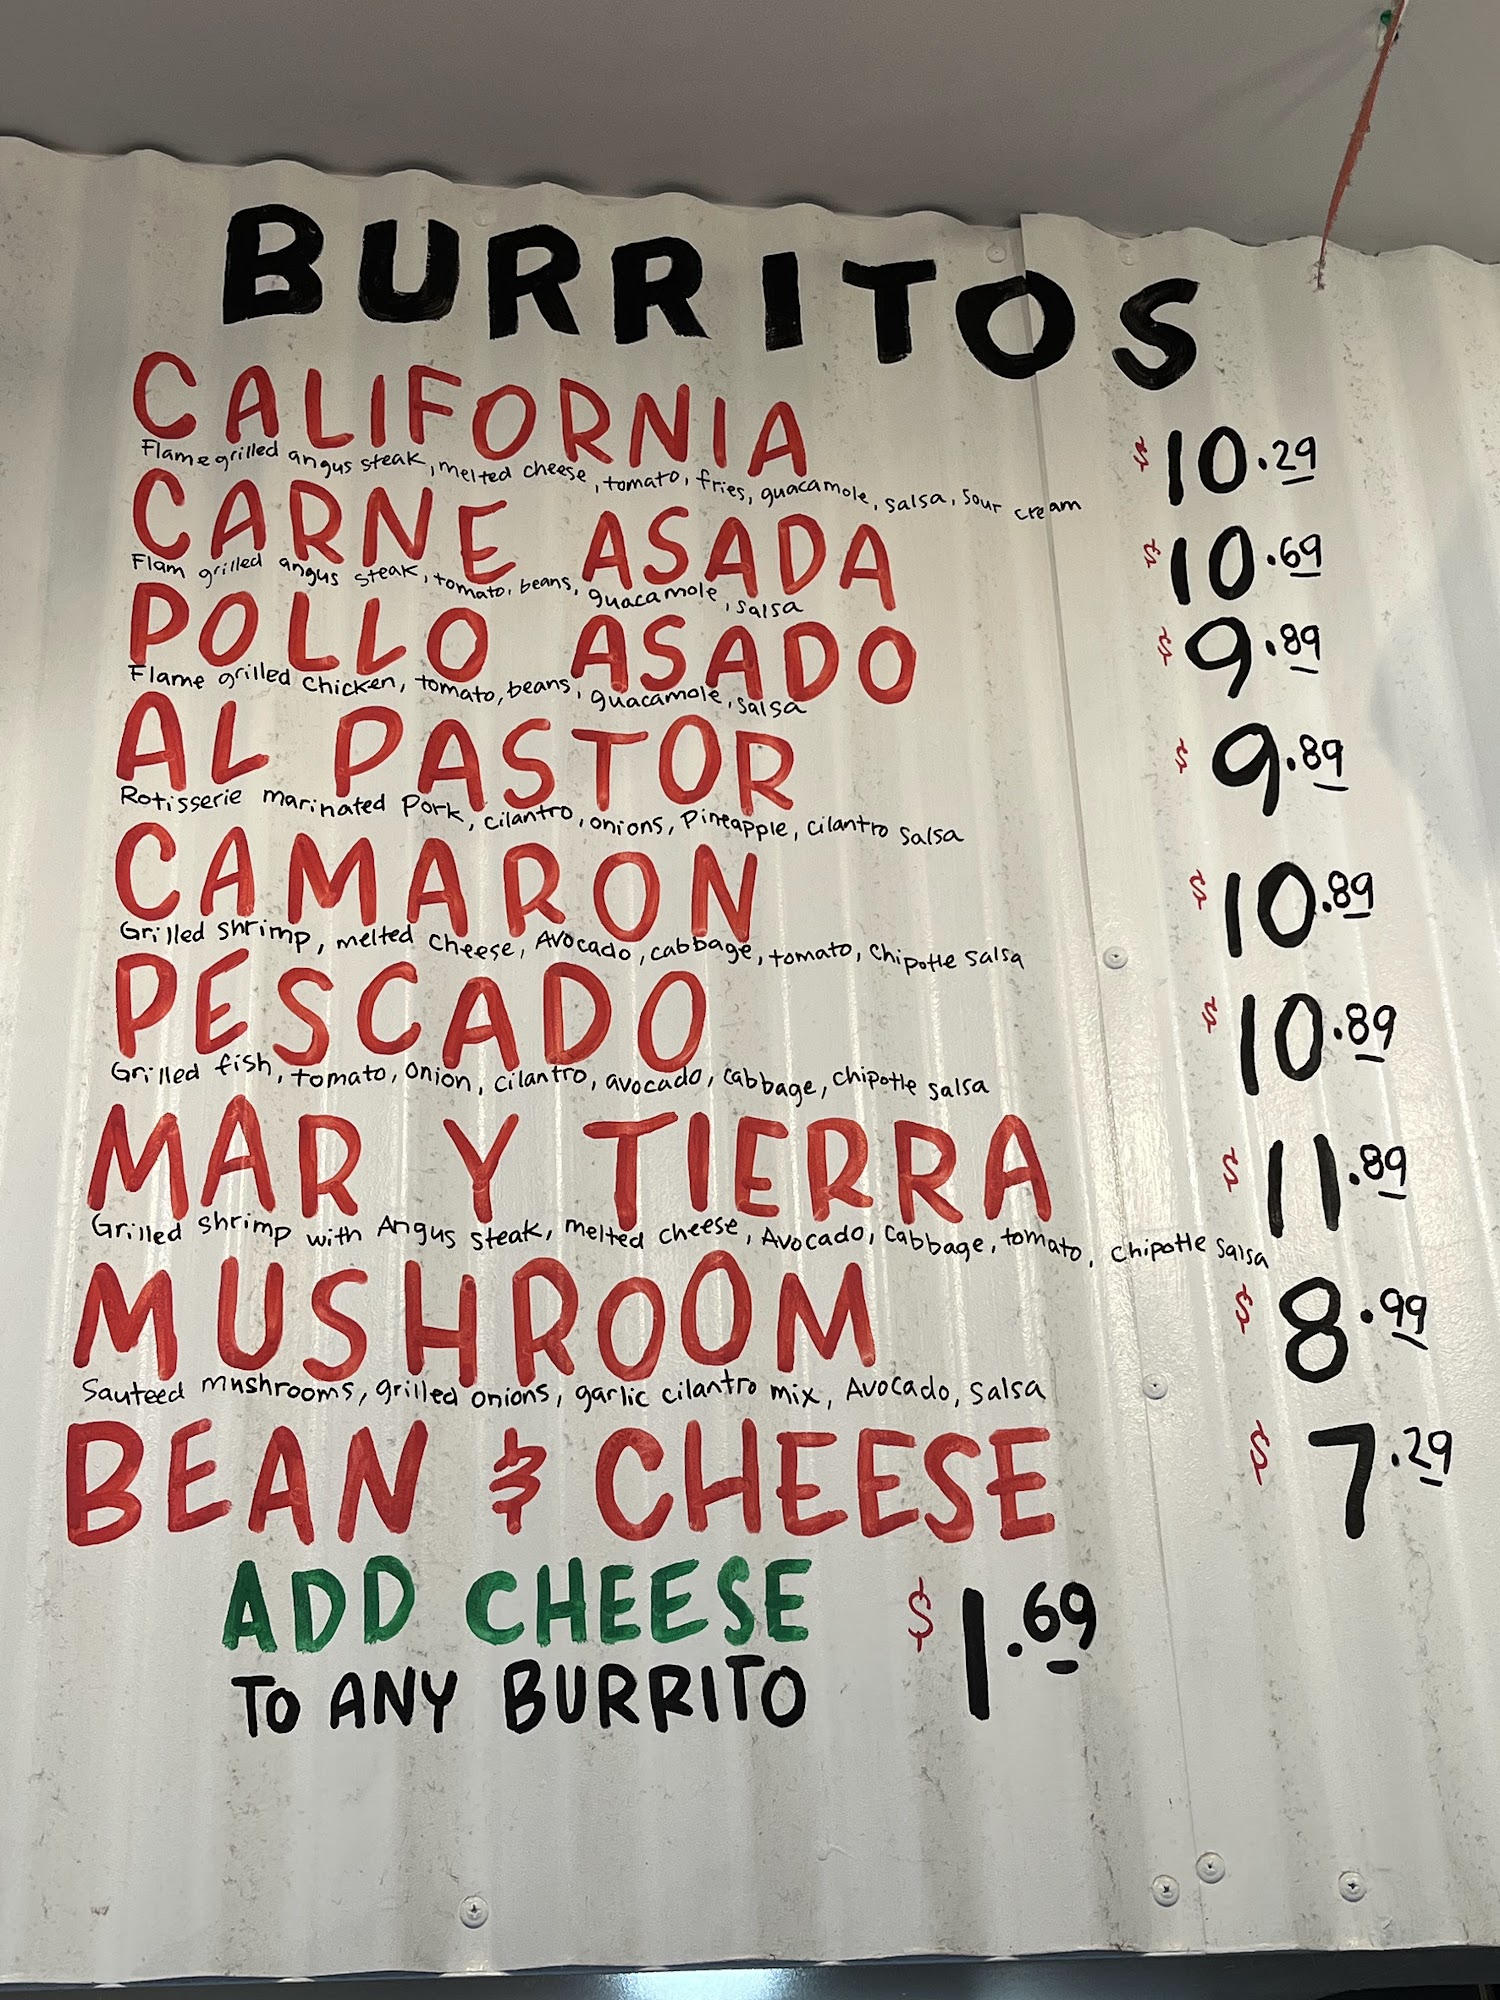 BURRITOS
CALIFORNIA $10.29
Flame grilled angus steak, melted cheese, tomato, fries, guacamole, salsa, sour cream
CARNE ASADA $10.69
Flam grilled angus steak, tomato, beans, guacamole, salsa
POLLO ASADO $9.89
Flame grilled chicken, tomato, beans, guacamole, salsa
AL PASTOR $9.89
Rotisserie marinated Pork, cilantro, onions, Pineapple, cilantro salsa
CAMARON $10.89
Grilled shrimp, melted cheese, Avocado, cabbage, tomato, chipotle salsa
PESCADO $10.89
Grilled fish, tomato, onion, cilantro, avocado, cabbage, chipotle salsa
MAR Y TIERRA $11.89
Grilled shrimp with Angus steak, melted cheese, Avocado, cabbage, tomato, chipotle salsa
MUSHROOM $8.99
Sauteed mushrooms, grilled onions, garlic cilantro mix, Avocado, salsa
BEAN & CHEESE $7.29
ADD CHEESE $1.69
TO ANY BURRITO